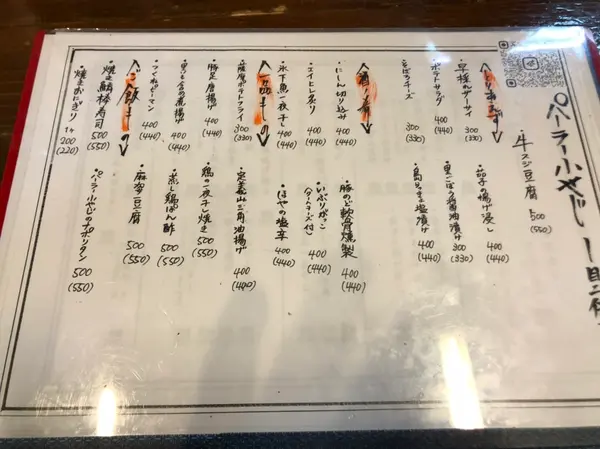 パーラー小やじ
・牛スジ豆腐 500 (550)
<とりあえず>
・早採れザーサイ 300 (330)
・ポテトサラダ 400 (440)
・そぼろチーズ 300 (330)
・茄子の揚げ浸し 400 (440)
・里ごぼう醤油漬け 300 (330)
塩漬け 400 (440)
<酒の肴>
・にしん切り込み 400 (440)
・エイヒレ炙り 400 (440)
・氷下魚一夜干し 400 (440)
・豚のど軟骨燻製 400 (440)
・いぶりがっこ 400 (440)
・ほやの塩辛 400 (440)
<一品もの>
・薩摩ポテトフライ 300 (330)
・豚足唐揚げ 400 (440)
煮揚げ 400 (440)
・つくねピーマン 400 (440)
・定義山三角油揚げ 400 (400)
・鶏の一夜干し焼き 500 (550)
・蒸し鶏ぽん酢 500 (550)
・麻婆豆腐 500 (550)
<ご飯もの>
・焼き鯖棒寿司 500 (550)
・焼きおにぎり 1ヶ 200 (220)
・パーラー小やじのナポリタン 500 (550)